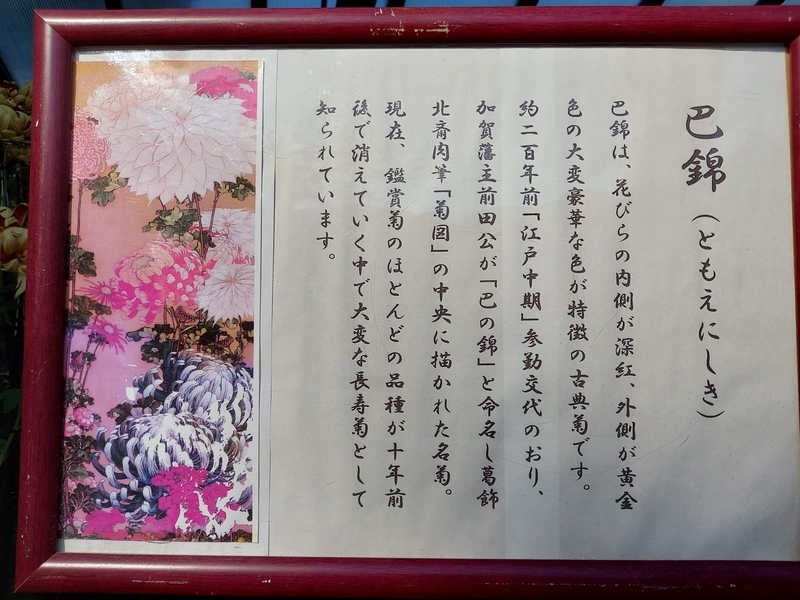 巴錦(ともえにしき)
巴錦は、花びらの内側が深紅、外側が黄金
色の大変豪華な色が特徴の古典菊です。
約二百年前「江戸中期」参勤交代のおり、
加賀藩主前田公が「巴の錦」と命名し葛飾
北斎肉筆「菊図」の中央に描かれた名菊。
現在、鑑賞菊のほとんどの品種が十年前
後で消えていく中で大変な長寿菊として
知られています。